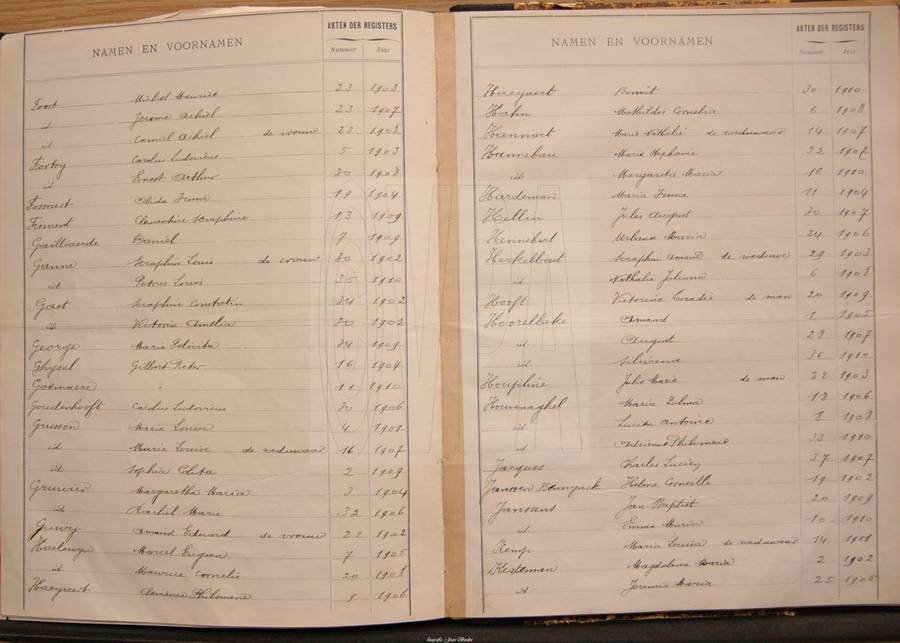 NAMEN EN VOORNAMEN
AKTEN DER REGISTERS
Nummer Jaar
Foort Michiel Maurice 23 1903
id Jerome Achiel 23 1907
id Camiel Achiel de vrouw 23 1908
Fortry Carolus Ludovicus 5 1903
id Ernest Arthur 30 1908
Fossaert Alida Irma 19 1904
Froment Clementine Seraphine 13 1909
Gailliaerde Daniël 7 1909
Ganne Seraphin Louis de vrouw 30 1902
id Petrus Louis 35 1910
Gast Seraphin Constatin 34 1902
id Victoria Amelia 30 1902
George Maria Felicita 34 1909
Ghysel Gilbert Pieter 16 1904
Goemaere 11 1910
Goudenhooft Carolus Ludovicus 30 1906
Grisson Marie Louise 4 1901
id Maria Louise de weduwaar 16 1907
id Sophia Colita 2 1909
Gruwier Margaretha Maria 3 1904
id Rachel Marie 32 1906
Gurry Amand Eduard de vrouw 22 1902
Haelewyn Marcel Eugeen 7 1905
id Maurice Cornelis 20 1908
Haeyaert Clemence Philomene 9 1906
NAMEN EN VOORNAMEN
AKTEN DER REGISTERS
Nummer Jaar
Haeyaert Benoit 30 1910
Hahn Mathildis Cornelia 6 1908
Hannart Marie Nathalie de weduwaar 14 1907
Hannebau Marie Stephanie 32 1907
id Margarita Maria 16 1910
Hardeman Maria Irma 11 1904
Hellin Jules August 30 1907
Hennebert Urbana Maria 24 1906
Herkelbout Seraphin Amand de weduwe 29 1903
id Nathalie Juliana 6 1908
Hooft Victorine Leocadie de man 20 1909
Hoorelbeke Amand 1 1905
id August 28 1907
id Silviana 36 1910
Houphine Julie Marie de man 22 1903
Houvenaghel Maria Zulma 18 1906
id Lucien Antoine 8 1908
id Adrienne Philomene 33 1910
Jacques Charles Lucien 37 1907
Janssen Helene Corneille 19 1902
Janssens Jan Baptist 20 1909
id Emma Maria 10 1910
Kemp Maria Louisa de weduwaar 14 1901
Kesteman Magdalena Maria 2 1902
id Jeremie Maria 25 1905